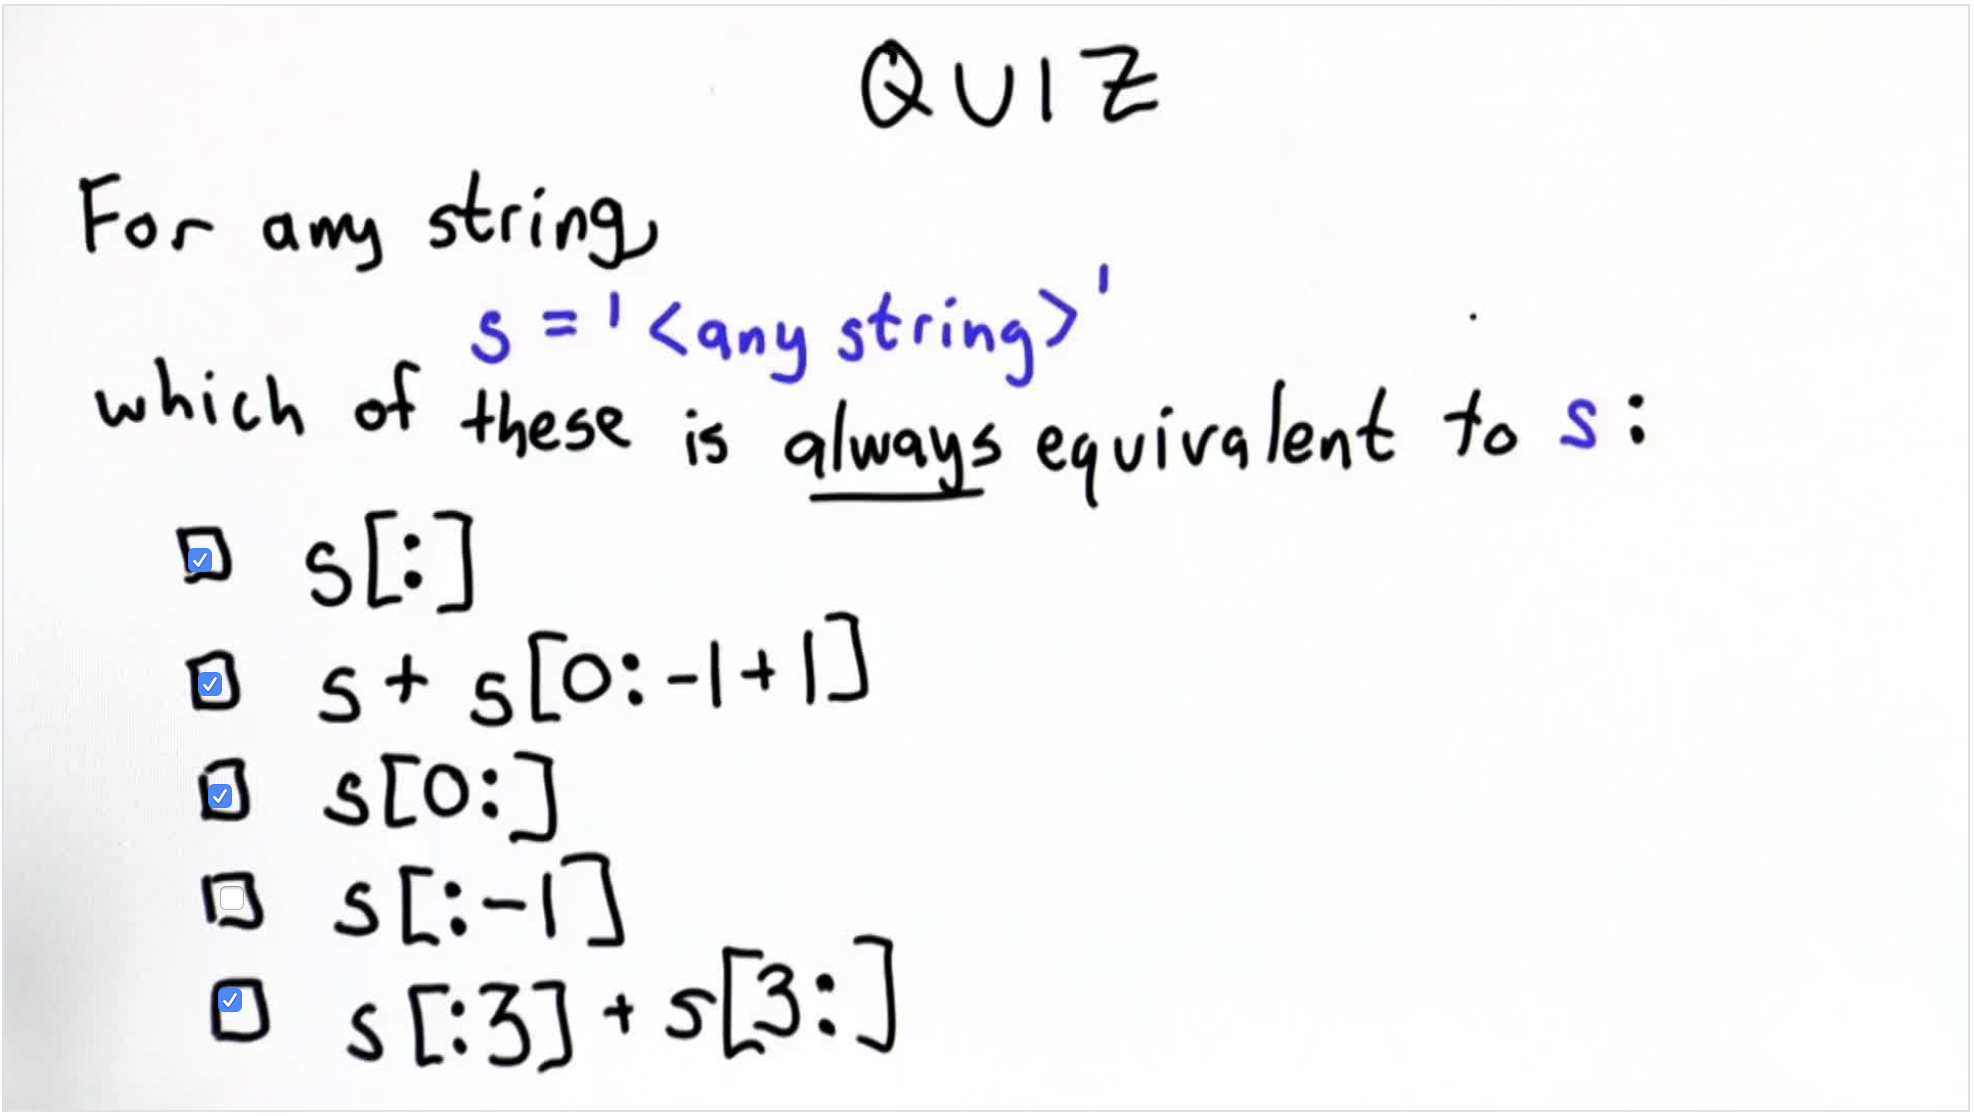 QUIZ
For any string,
s = '<any string>'
which of these is always equivalent to s:
s[:]
s + s[0:-1+1]
s[0:]
s[:-1]
s[:3] + s[3:]